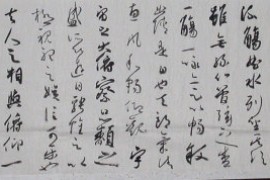 流觴曲水列坐其次
雖無絲竹管弦之盛
一觴一詠亦足以暢敘
幽情是日也天朗氣清
惠風和暢仰觀宇
宙之大俯察品類之
盛所以遊目騁懷足以
極視聽之娛信可樂也
夫人之相與俯仰一